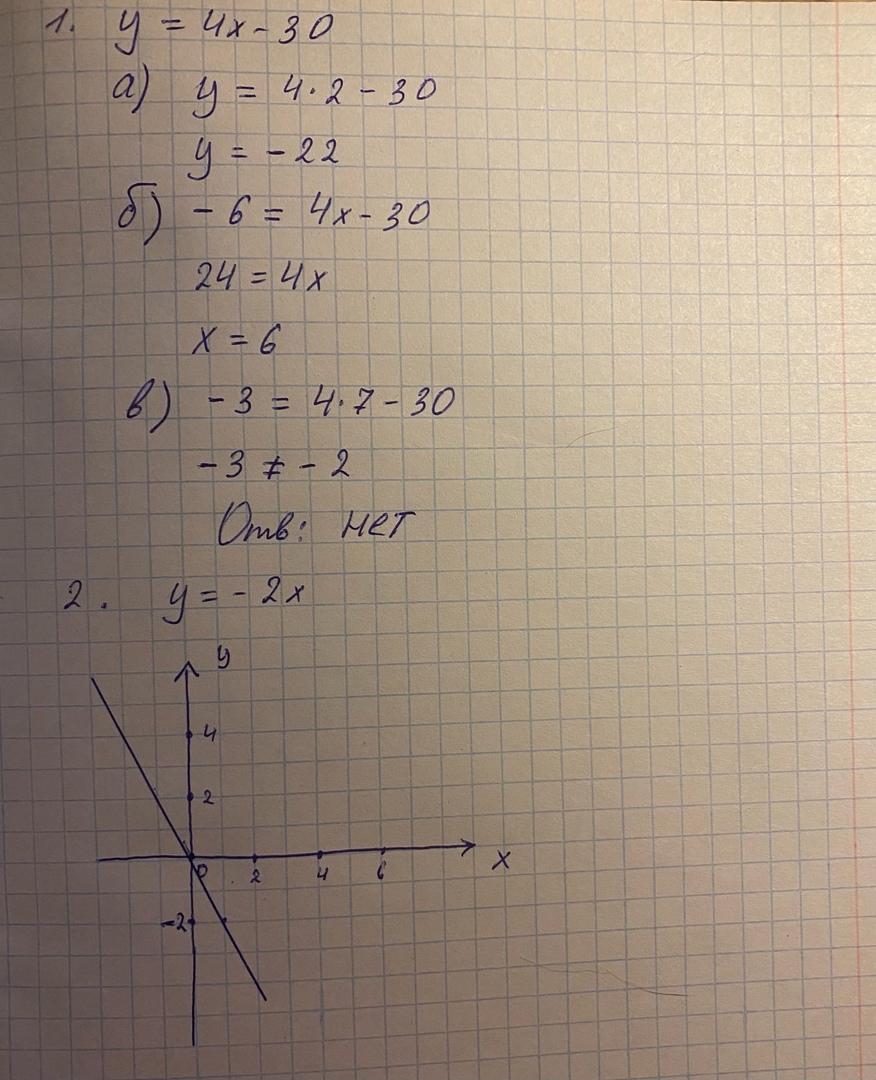 1. y = 4x - 30
а) y = 4·2 - 30
y = -22
б) -6 = 4x - 30
24 = 4x
x = 6
в) -3 = 4·7 - 30
-3 ≠ -2
Отв: нет
2. y = -2x
y
4
2
0 2 4 6 x
-2